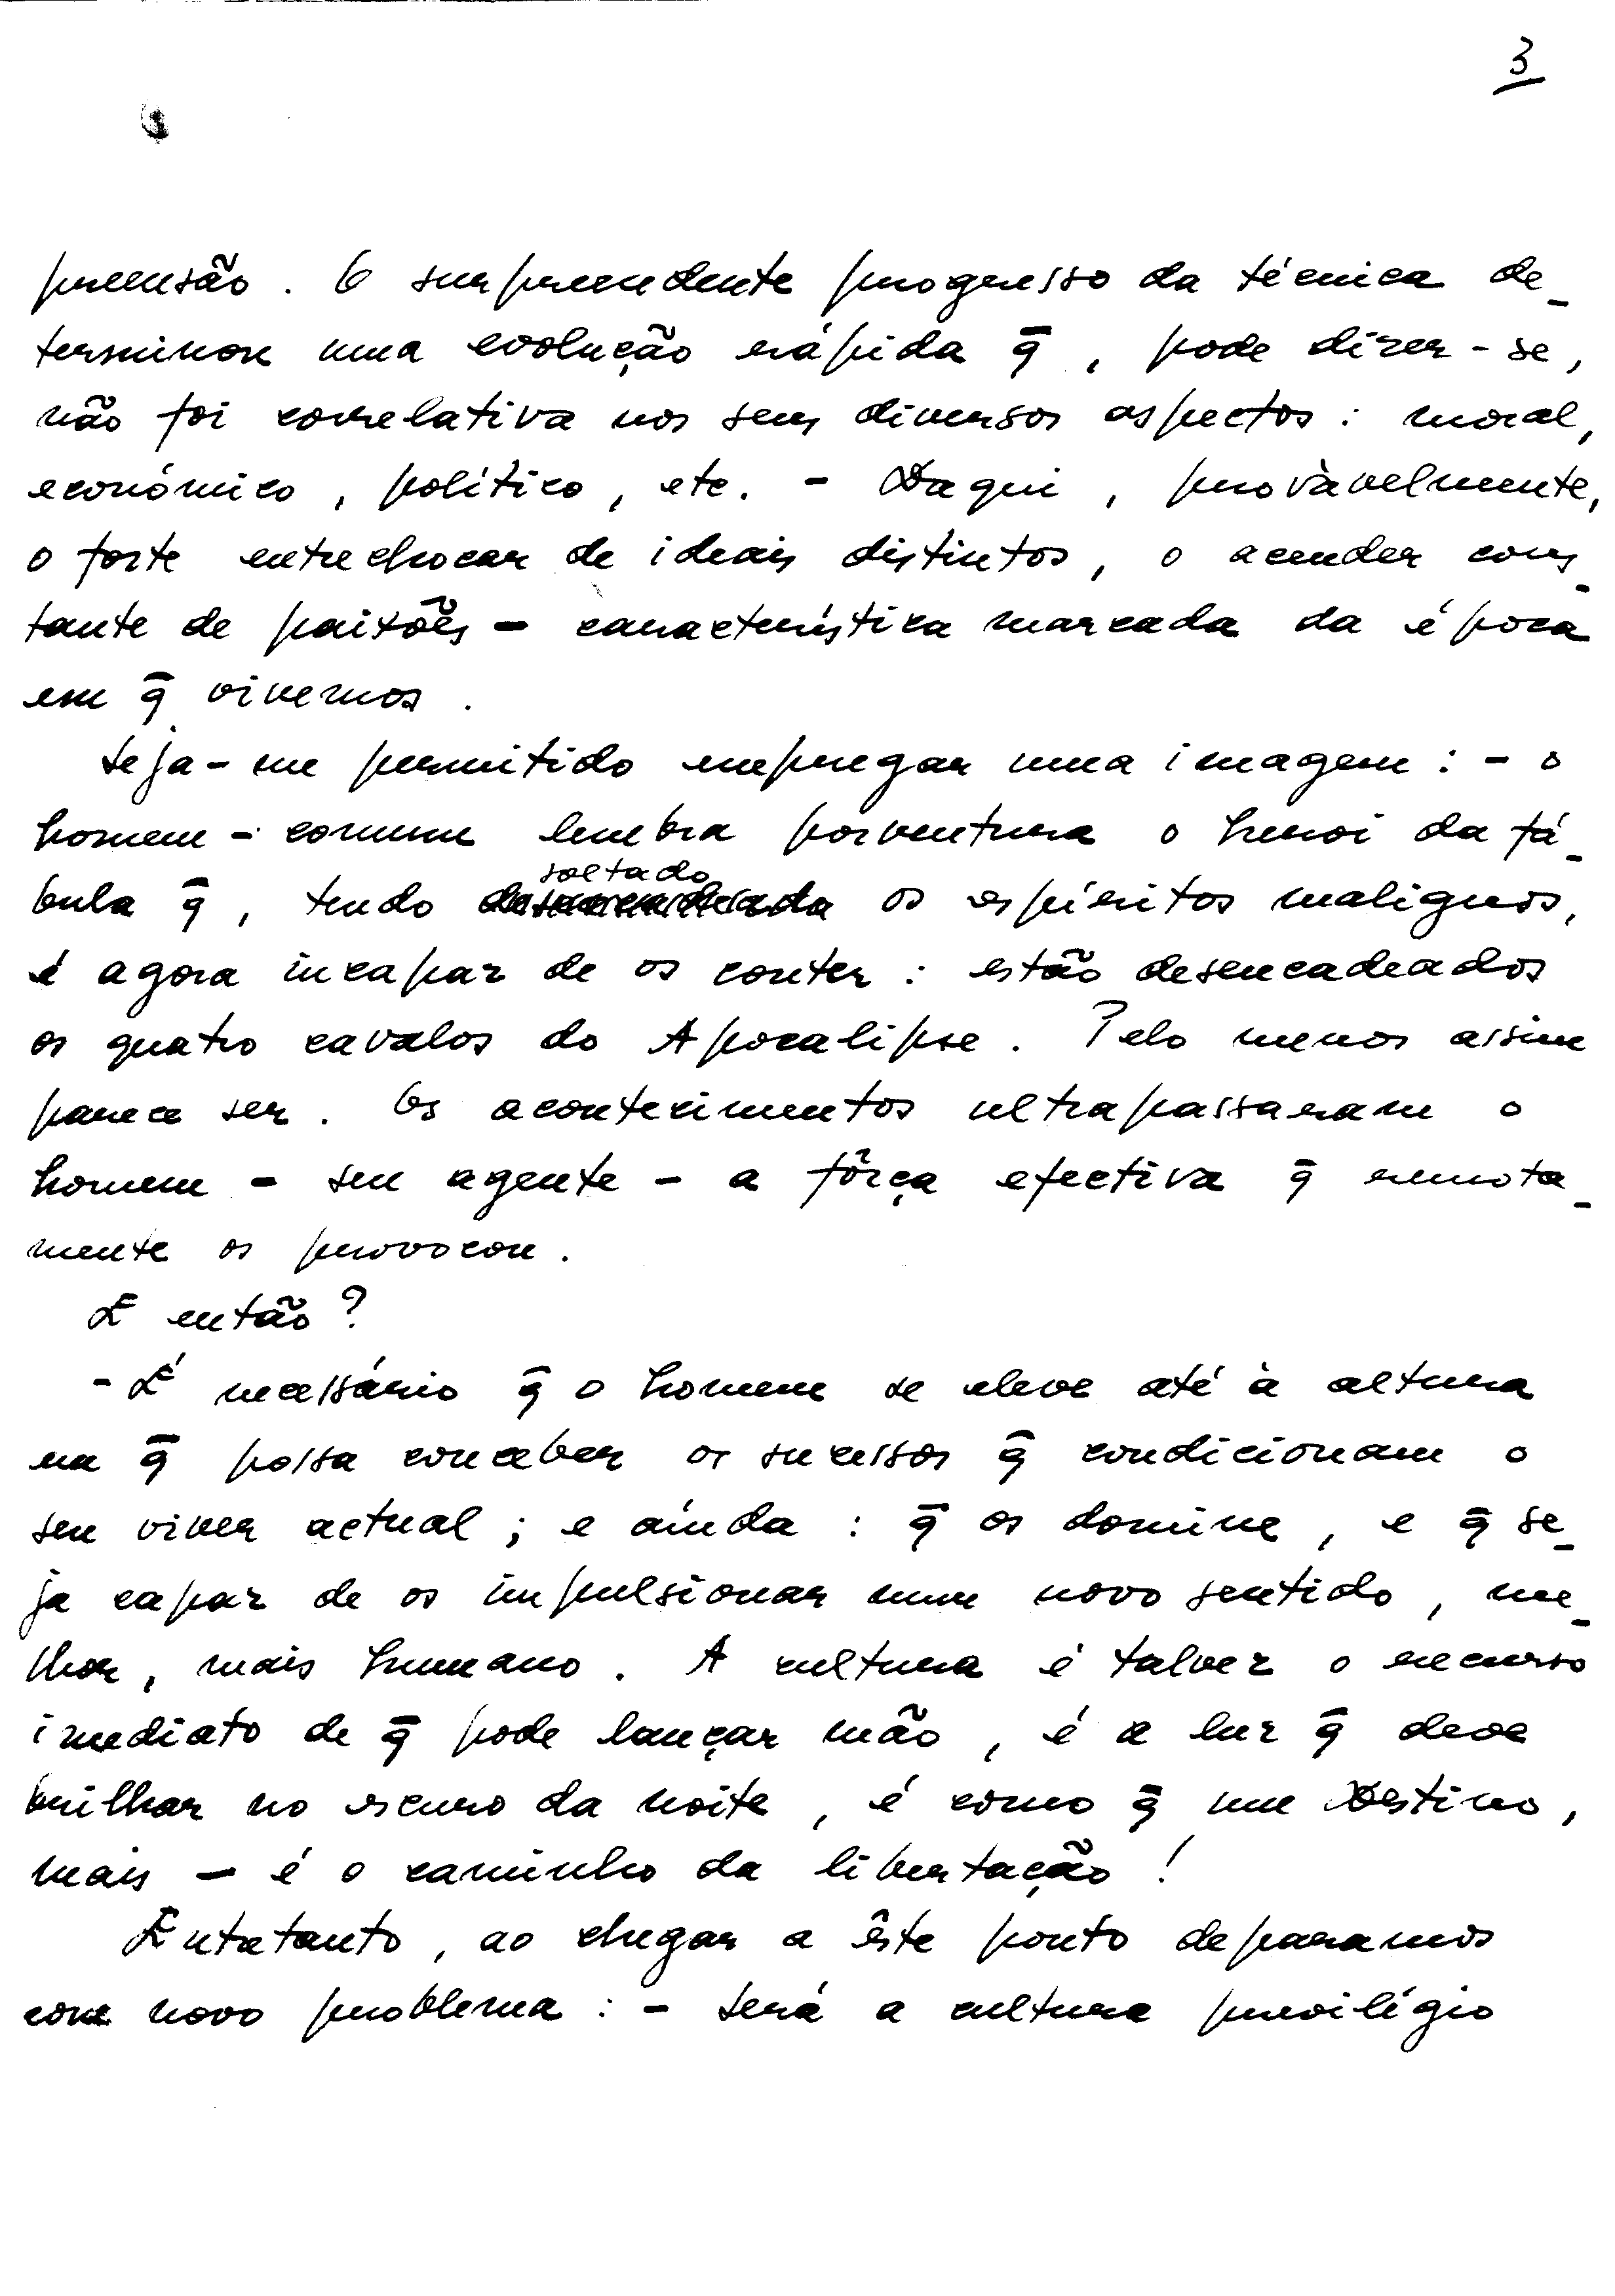 3
preensão. O surpreendente progresso da técnica de-
terminou uma evolução rápida q̄, pode dizer-se,
não foi correlativa nos seus diversos aspectos: moral,
económico, político, etc. - Daqui, provàvelmente,
o forte entrechocar de ideais distintos, o acender cons-
tante de paixões - característica marcada da época
em q̄ vivemos.
Seja-me permitido empregar uma imagem: - o
homem-comum lembra porventura o heroi da fá-
soltado
bula q̄, tendo os espíritos malignos,
é agora incapaz de os conter: estão desencadeados
os quatro cavalos do Apocalipse. Pelo menos assim
parece ser. Os acontecimentos ultrapassaram o
homem - seu agente - a fôrça efectiva q̄ remota-
mente os provocou.
E então?
- É necessário q̄ o homem se eleve até à altura
na q̄ possa conceber os sucessos q̄ condicionam o
seu viver actual; e ainda: q̄ os domine, e q̄ se-
ja capaz de os impulsionar num novo sentido, me-
lhor, mais humano. A cultura é talvez o recurso
imediato de q̄ pode lançar mão, é a luz q̄ deve
brilhar no escuro da noite, é como q̄ um Destino,
mais - é o caminho da libertação!
Entretanto, ao chegar a êste ponto deparamos
com novo problema: - será a cultura previlégio